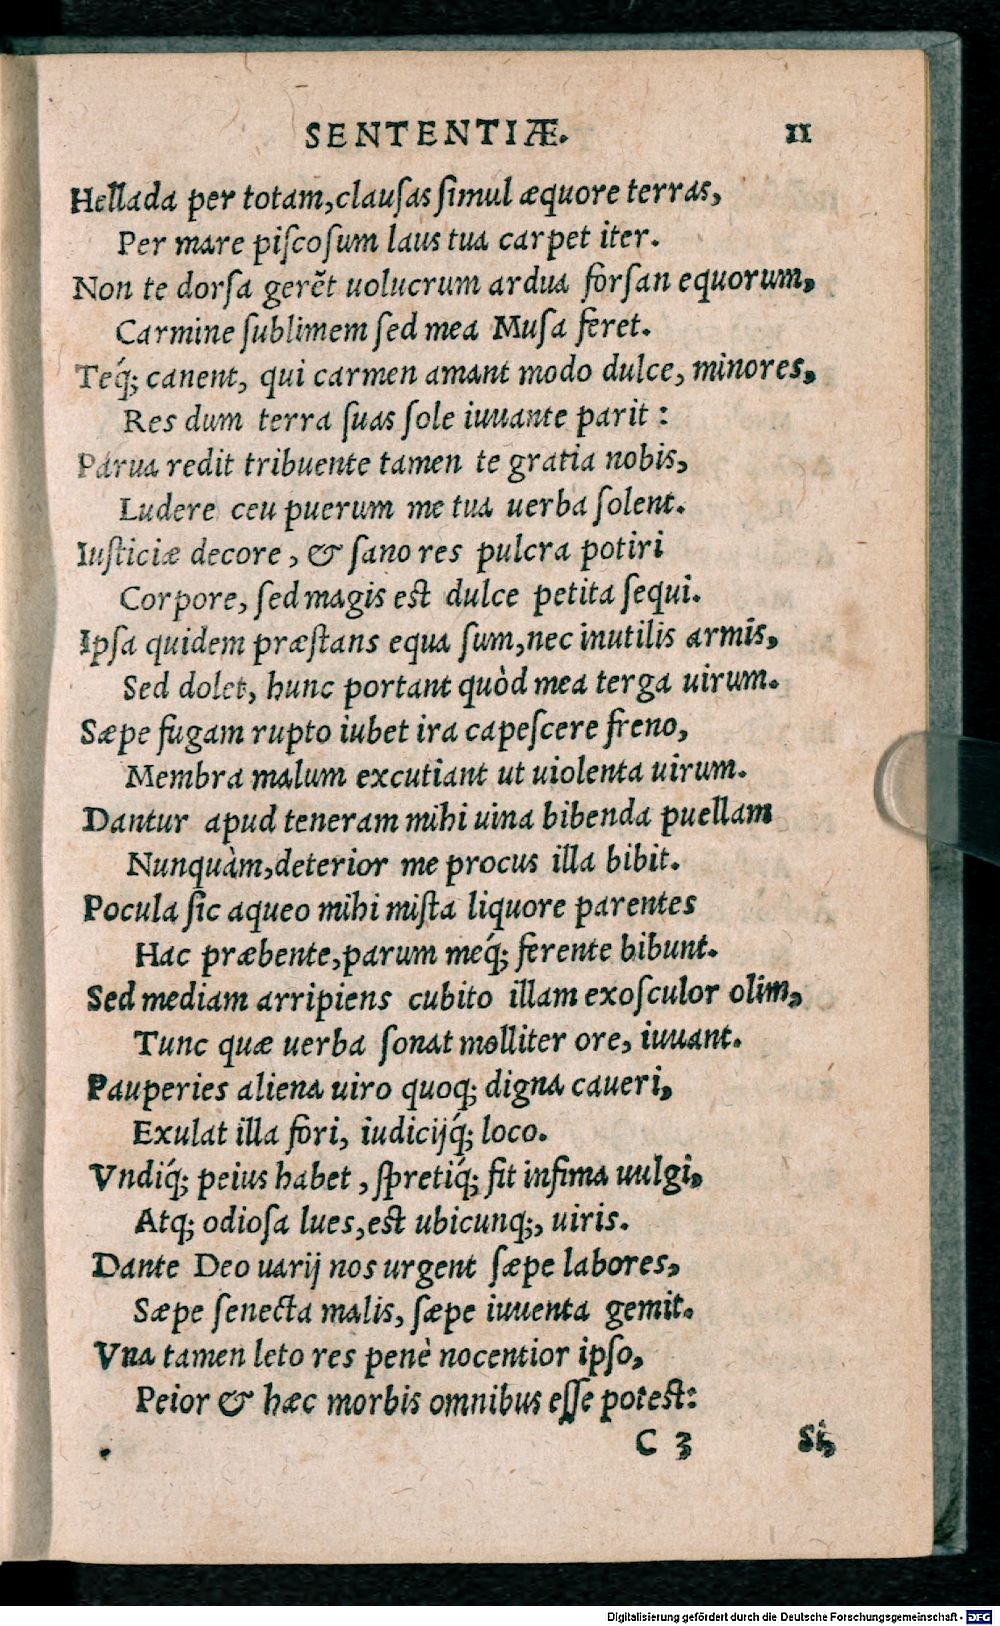 SENTENTIÆ. 11
Hellada per totam, clauſas ſimul æquore terras,
Per mare piſcoſum laus tua carpet iter.
Non te dorſa gerẽt uolucrum ardua forſan equorum,
Carmine ſublimem ſed mea Muſa feret.
Teq́; canent, qui carmen amant modo dulce, minores,
Res dum terra ſuas ſole iuuante parit :
Parua redit tribuente tamen te gratia nobis,
Ludere ceu puerum me tua uerba ſolent.
Iuſticiæ decore, & ſano res pulcra potiri
Corpore, ſed magis eſt dulce petita ſequi.
Ipſa quidem præſtans equa ſum, nec inutilis armis,
Sed dolet, hunc portant quòd mea terga uirum.
Sæpe fugam rupto iubet ira capeſcere freno,
Membra malum excutiant ut uiolenta uirum.
Dantur apud teneram mihi uina bibenda puellam
Nunquàm, deterior me procus illa bibit.
Pocula ſic aqueo mihi miſta liquore parentes
Hac præbente, parum meq́; ferente bibunt.
Sed mediam arripiens cubito illam exoſculor olim,
Tunc quæ uerba ſonat molliter ore, iuuant.
Pauperies aliena uiro quoq; digna caueri,
Exulat illa fori, iudicijq́; loco.
Vndiq́; peius habet, ſpretiq́; fit infima uulgi,
Atq; odioſa lues, eſt ubicunq;, uiris.
Dante Deo uarij nos urgent ſæpe labores,
Sæpe ſenecta malis, ſæpe iuuenta gemit.
Vna tamen leto res penè nocentior ipſo,
Peior & hæc morbis omnibus eſſe poteſt:
C 3 Si,
Digitalisierung gefördert durch die Deutsche Forschungsgemeinschaft - DFG